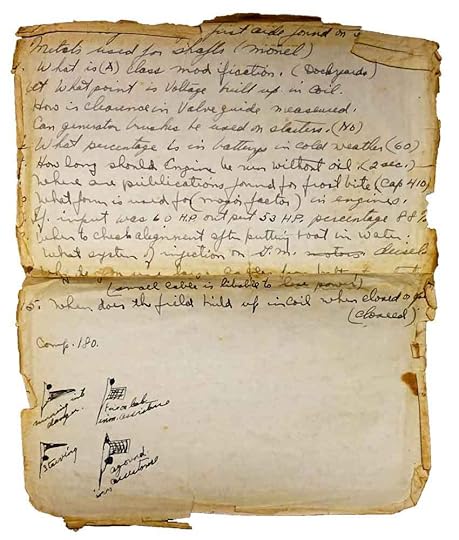 first aide found on
Metals used for shafts (monel)
What is (A) Class modification. (Dockyards)
At What point is Voltage built up in Coil.
How is clearence in Valve guide measured.
Can generator brushes be used on starters. (No)
What percentage is in batterys in cold weather (60)
How long should Engine be run without oil. (2 sec.)
Where are publications found for frost bite (Cap 410)
What form is used for (major factor) in engines.
If input was 60 H.P. out put 53 H.P. percentage 88%
When to check alignment after putting boat in water.
What system of injection on G.M. motors diesel
(small cable is liable to lose power)
5. When does the field build up in coil when closed or
(closeed)
Comp. 180.
running into danger.
Fire or leak
assistance
starving
aground
assistance